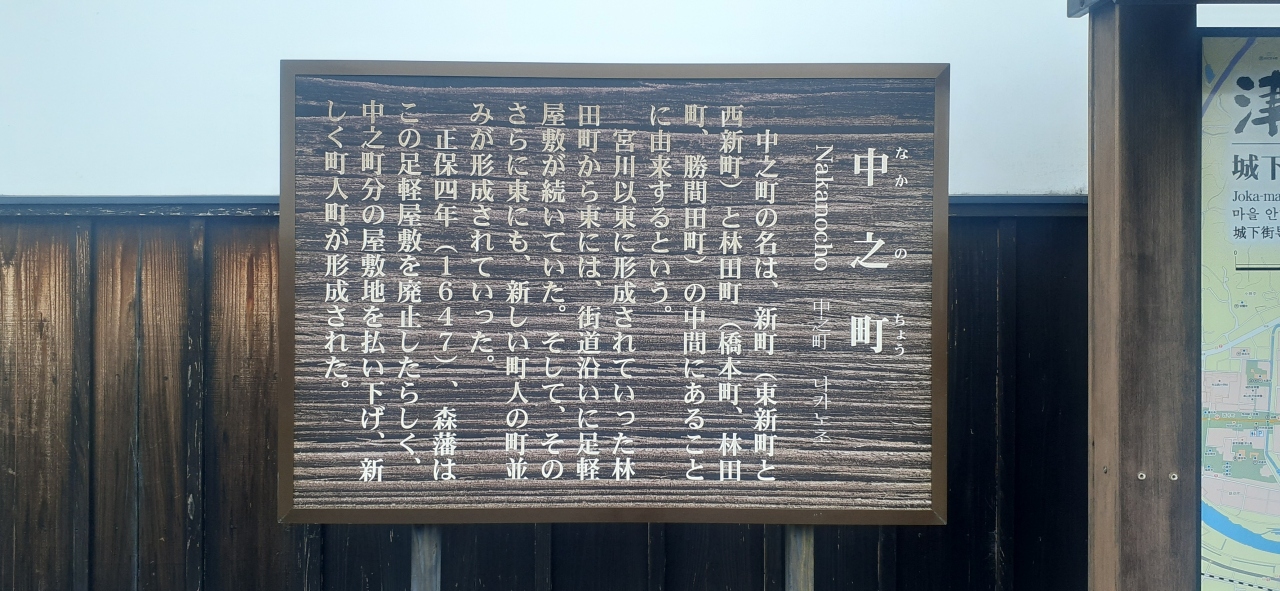 中之町
なか の ちょう
Nakanocho 中之町 나카노초
中之町の名は、新町（東新町と
西新町）と林田町（橋本町、林田
町、勝間田町）の中間にあること
に由来するという。
宮川以東に形成されていった林
田町から東には、街道沿いに足軽
屋敷が続いていた。そして、その
さらに東にも、新しい町人の町並
みが形成されていった。
正保四年（1647）、森藩は
この足軽屋敷を廃止したらしく、
中之町分の屋敷地を払い下げ、新
しく町人町が形成された。
津
城下
Joka-ma
마을 안
城下街